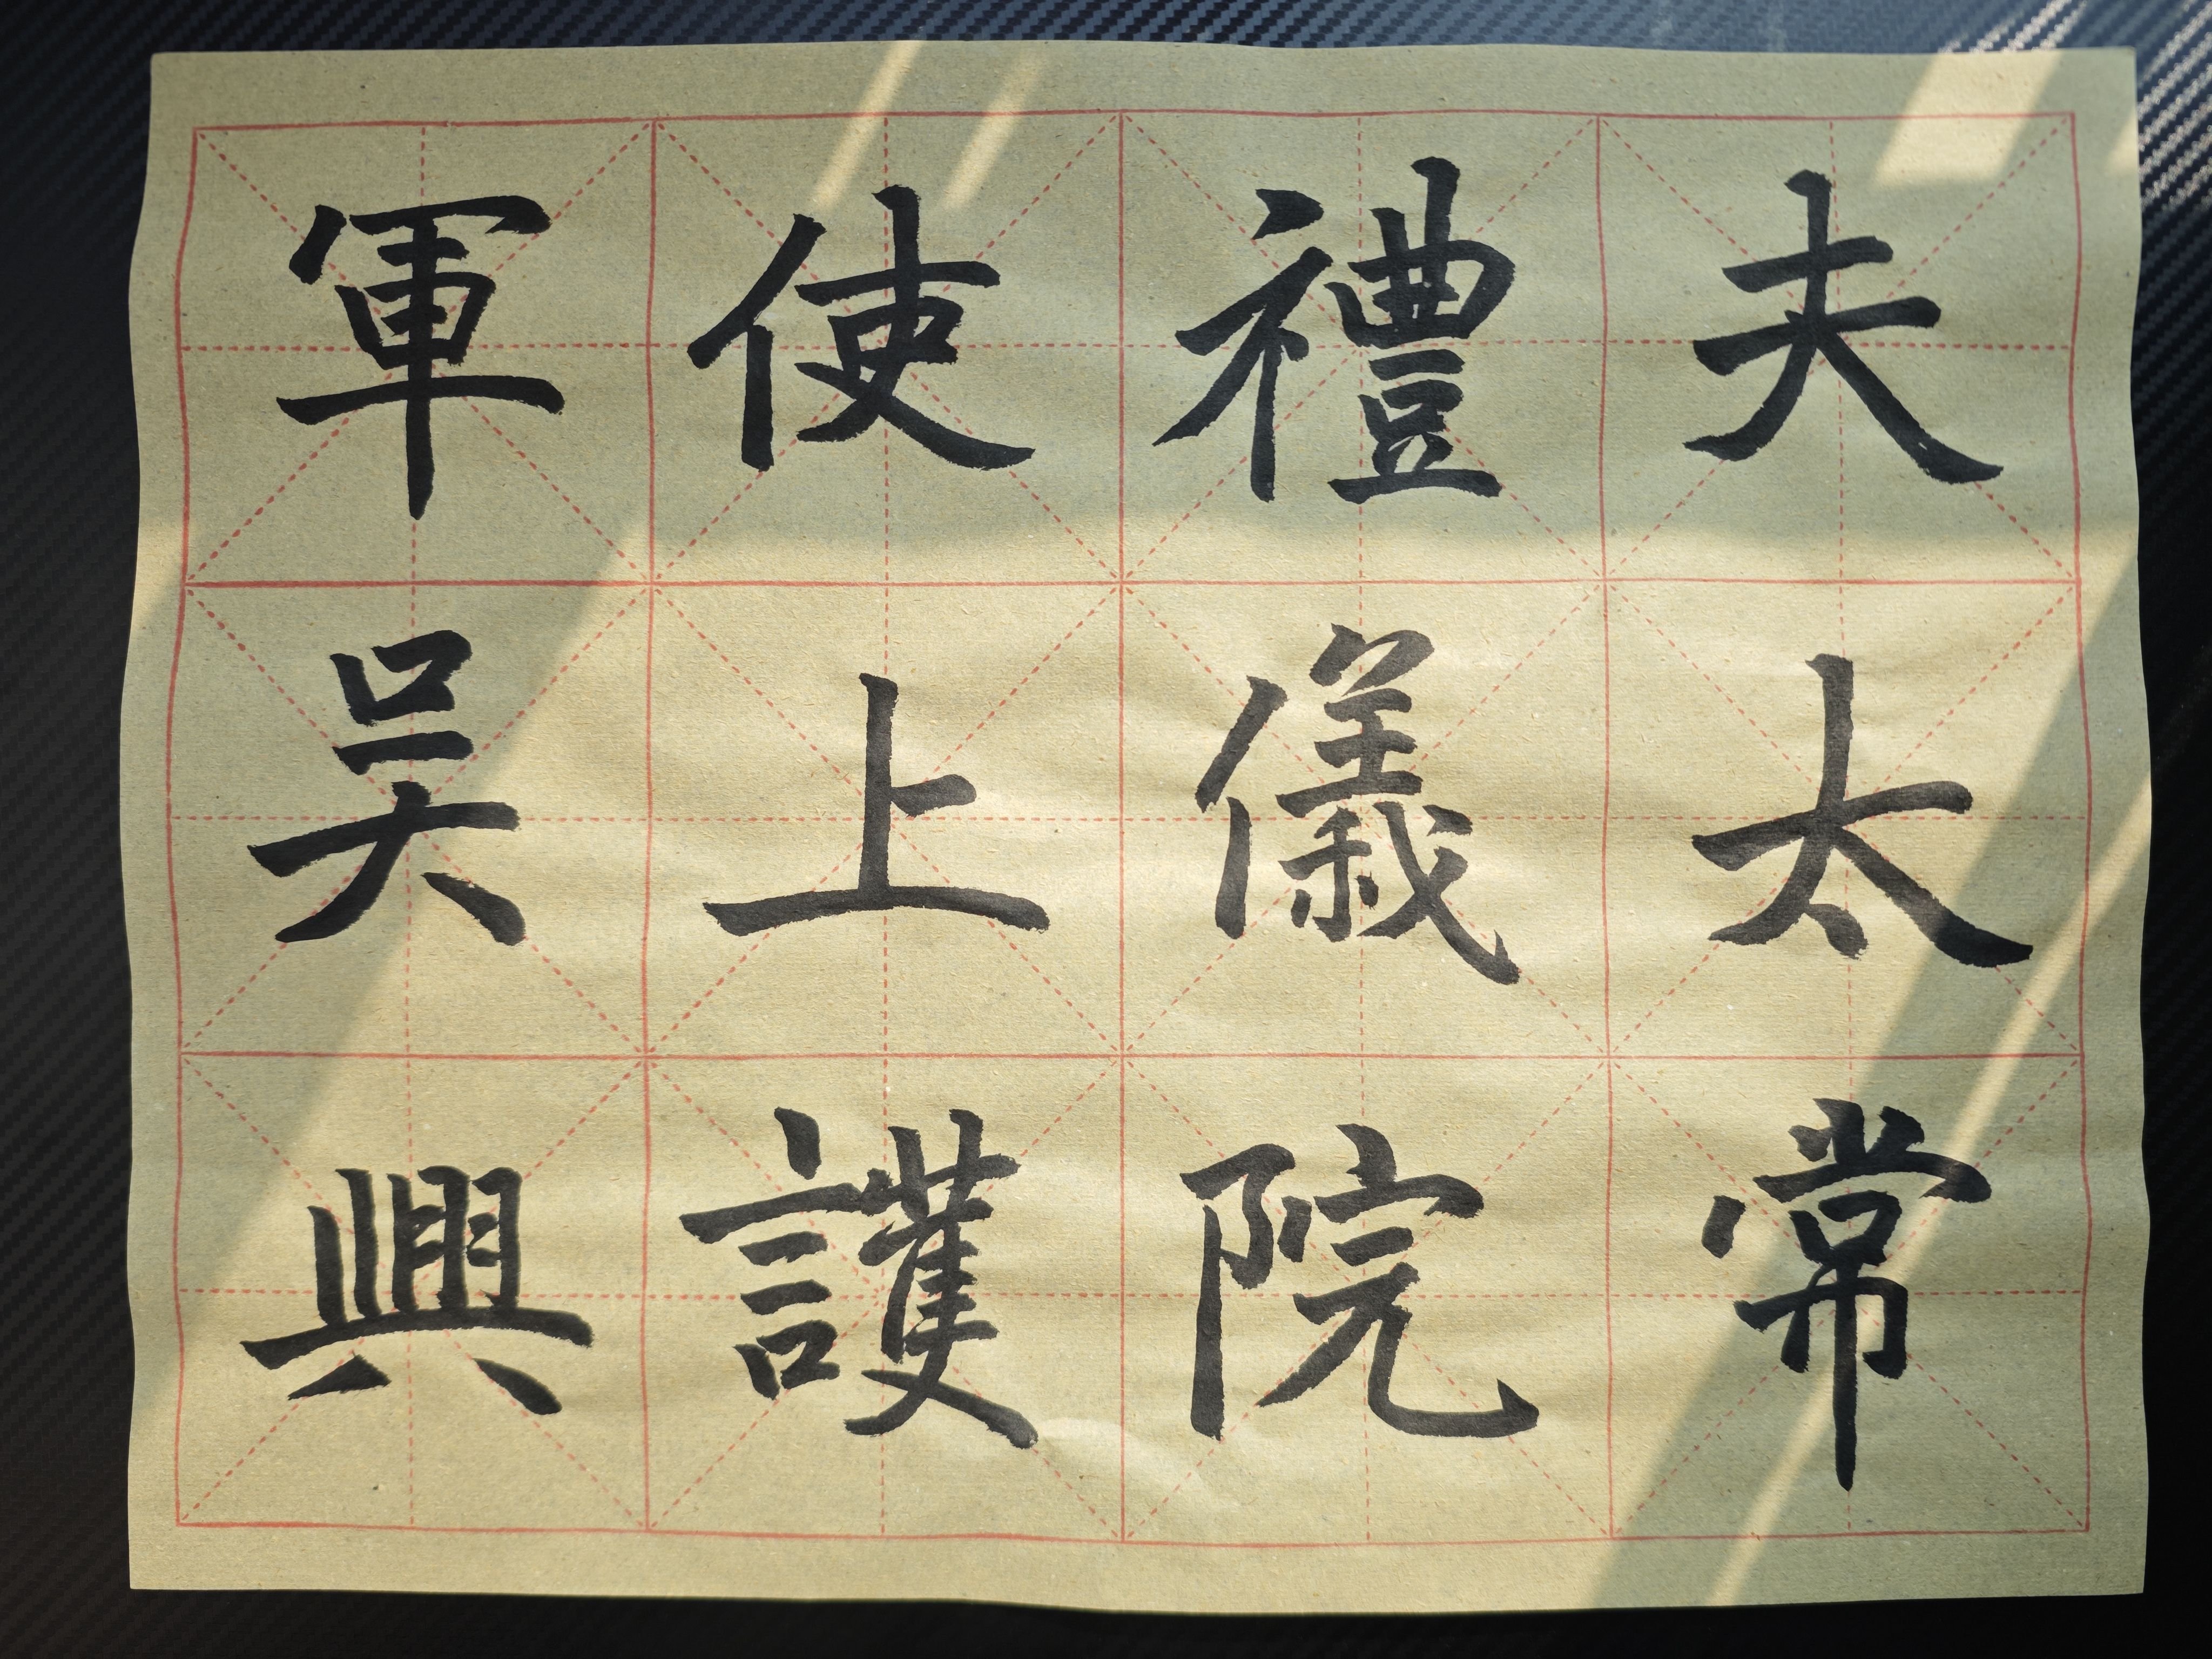 夫太常
禮儀院
使上護
軍吳興